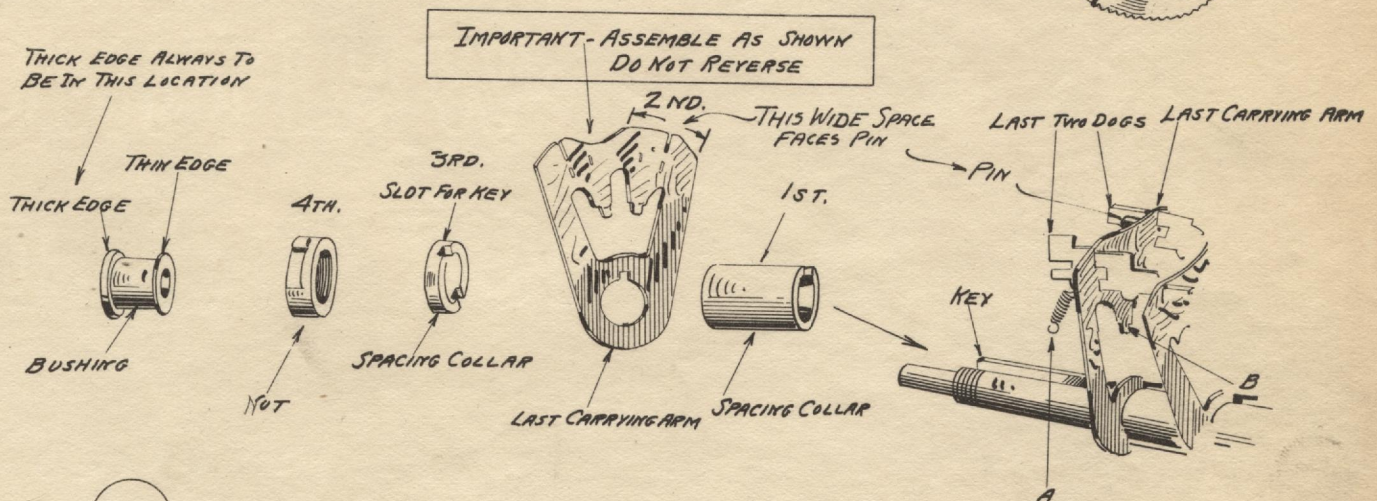 IMPORTANT - ASSEMBLE AS SHOWN
DO NOT REVERSE
THICK EDGE ALWAYS TO
BE IN THIS LOCATION
THIN EDGE
THICK EDGE
BUSHING
4TH.
NUT
3RD.
SLOT FOR KEY
SPACING COLLAR
2ND.
THIS WIDE SPACE
FACES PIN
LAST CARRYING ARM
1ST.
SPACING COLLAR
LAST TWO DOGS
LAST CARRYING ARM
PIN
KEY
B
A